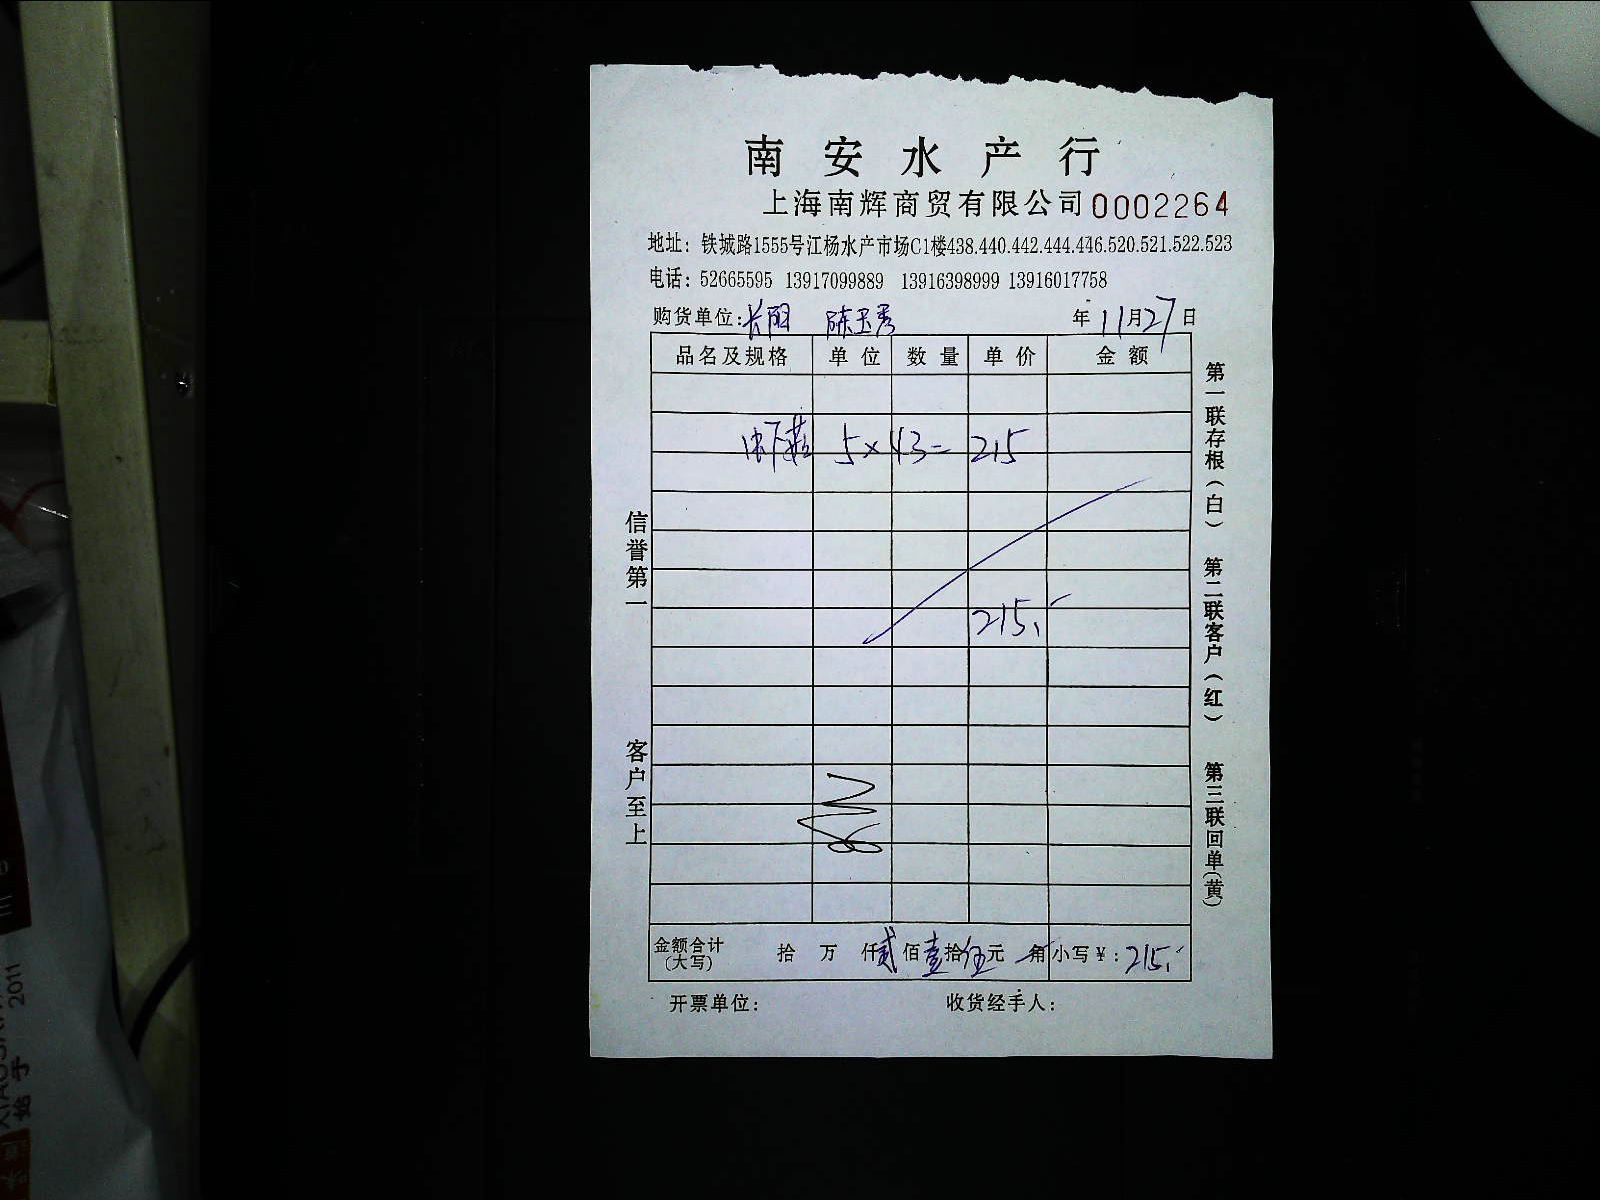 南安水产行
上海南辉商贸有限公司 0002264
地址：铁城路1555号江杨水产市场C1楼438.440.442.444.446.520.521.522.523
电话：52665595 13917099889 13916398999 13916017758
购货单位： 陈玉秀 年 11月27日
品名及规格 单位 数量 单价 金额
虾 5×43=215
215.
金额合计(大写) 拾 万 仟贰佰壹拾伍元 角 小写￥：215.
开票单位： 收货经手人：
信誉第一 客户至上
第一联存根（白） 第二联客户（红） 第三联回单（黄）
2011